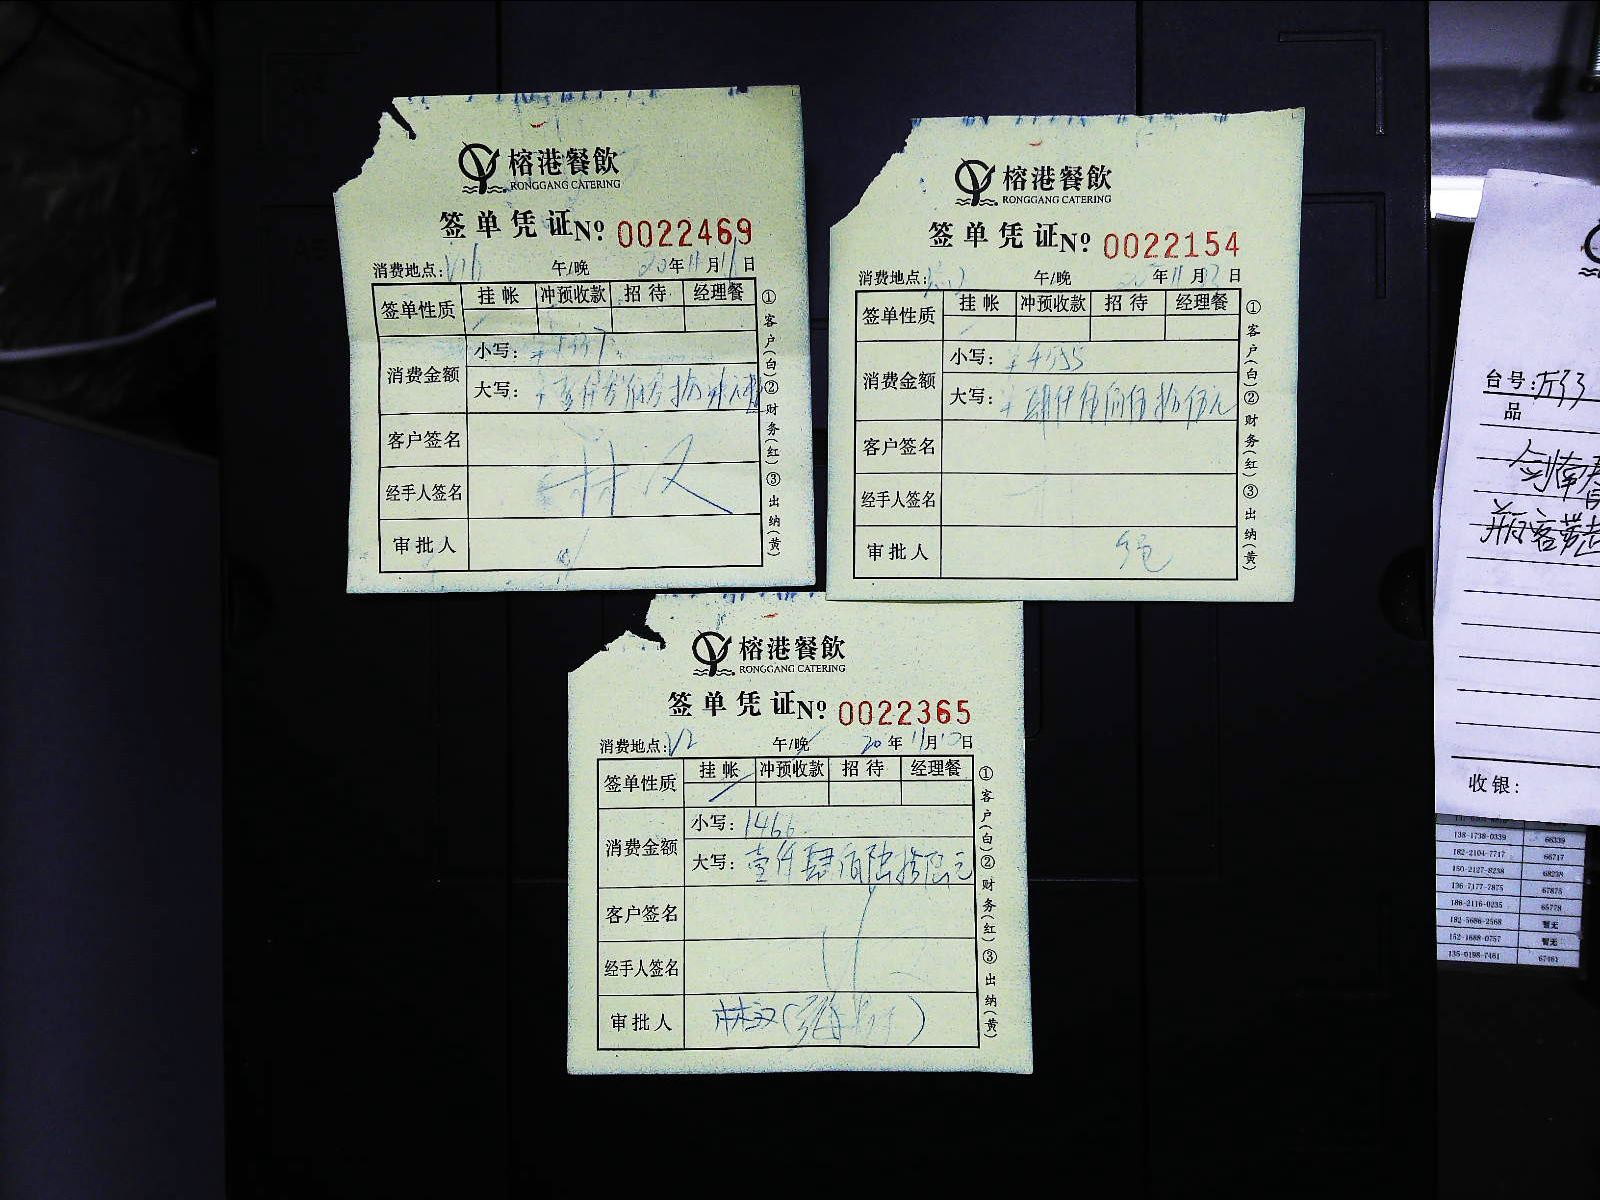 榕港餐飲
RONGGANG CATERING
签单凭证 Nº 0022469
消费地点: V16 午/晚 20年11月11日
签单性质 挂帐 冲预收款 招待 经理餐
消费金额
小写:
大写:
客户签名
经手人签名
林汉
审批人
①客户(白)②财务(红)③出纳(黄)
榕港餐飲
RONGGANG CATERING
签单凭证 Nº 0022154
消费地点: 午/晚 年11月 日
签单性质 挂帐 冲预收款 招待 经理餐
消费金额
小写: ¥4555
大写: ¥肆仟伍佰伍拾伍元
客户签名
经手人签名
审批人
①客户(白)②财务(红)③出纳(黄)
榕港餐飲
RONGGANG CATERING
签单凭证 Nº 0022365
消费地点: V2 午/晚 20年11月10日
签单性质 挂帐 冲预收款 招待 经理餐
消费金额
小写: 1466
大写: 壹仟肆佰陆拾陆元
客户签名
经手人签名
审批人 林汉
①客户(白)②财务(红)③出纳(黄)
台号:
品
剑南春
瓶客带走
收银:
138-1738-0339 66339
182-2104-7717 66717
150-2127-8238 68238
136-7177-7875 67875
186-2116-0235 65778
182-5686-2568 暂无
152-1688-0757 暂无
135-0198-7461 67461